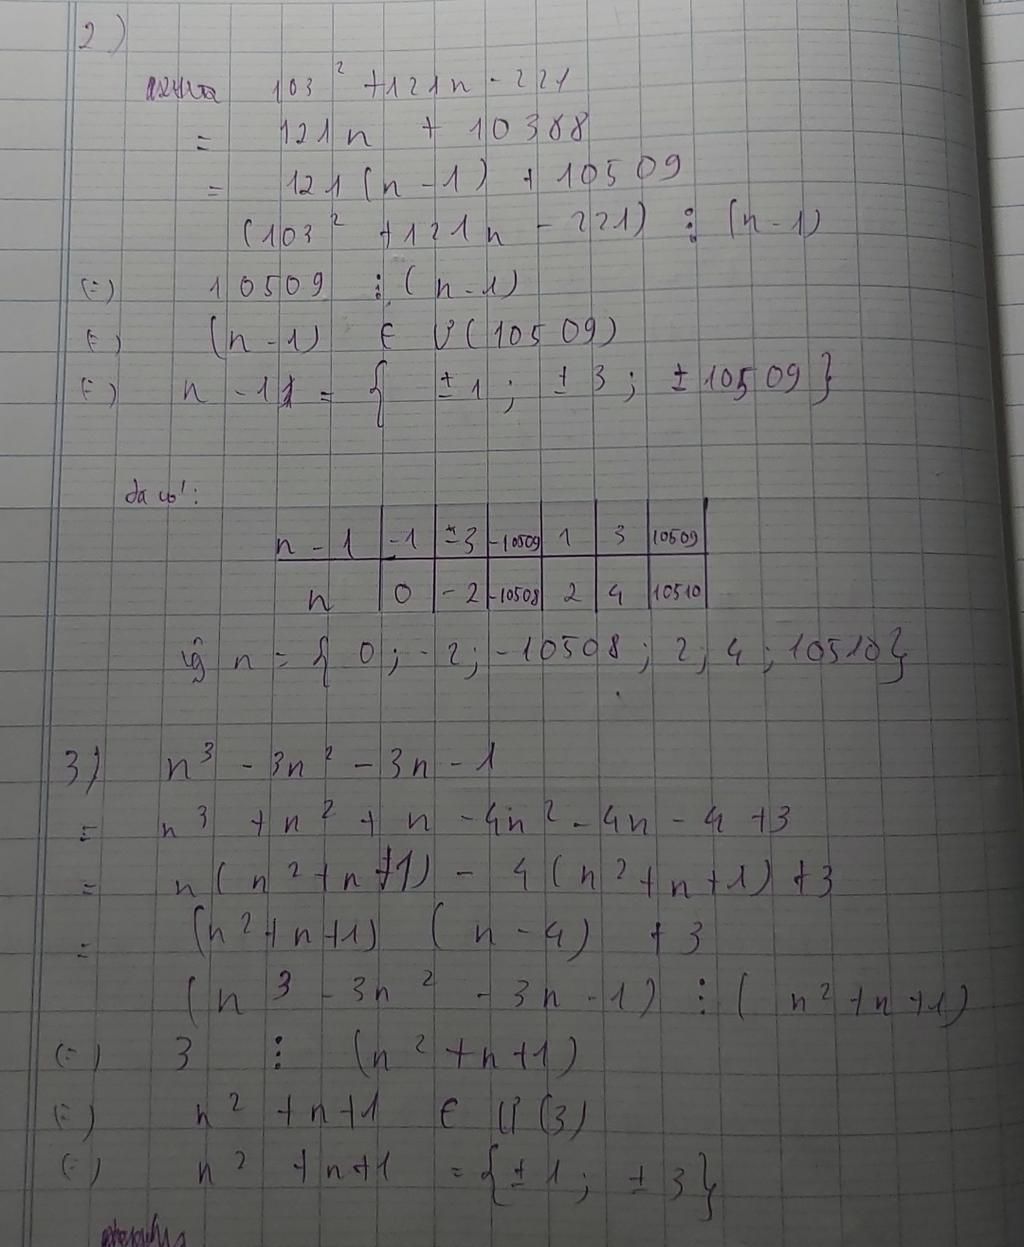 2)
103² + 121n - 221
= 121n + 10388
= 121(n - 1) + 10509
(103² + 121n - 221) ⋮ (n - 1)
(=) 10509 ⋮ (n - 1)
(=) (n - 1) ∈ Ư(10509)
(=) n - 1 = { ± 1; ± 3; ± 10509}
Ta có:
n - 1 | -1 | -3 | -10509 | 1 | 3 | 10509
n | 0 | -2 | -10508 | 2 | 4 | 10510
n = { 0; -2; -10508; 2; 4; 10510}
3) n³ - 3n² - 3n - 1
= n³ + n² + n - 4n² - 4n - 4 + 3
= n(n² + n + 1) - 4(n² + n + 1) + 3
= (n² + n + 1) (n - 4) + 3
(n³ - 3n² - 3n - 1) ⋮ (n² + n + 1)
(=) 3 ⋮ (n² + n + 1)
(=) n² + n + 1 ∈ Ư(3)
(=) n² + n + 1 = {± 1; ± 3}